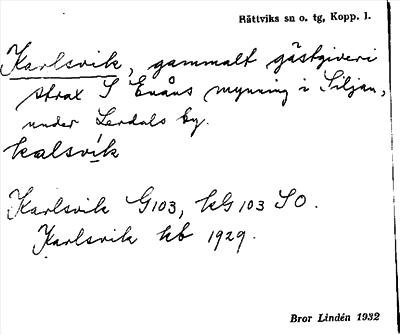 Rättviks sn o. tg, Kopp. l.
Karlsvik, gammalt gästgiveri
strax S Enåns mynning i Siljan,
under Lerdals by.
kalsvik
Karlsvik G103, kG 103 SO.
Karlsvik kb 1929.
Bror Lindén 1932